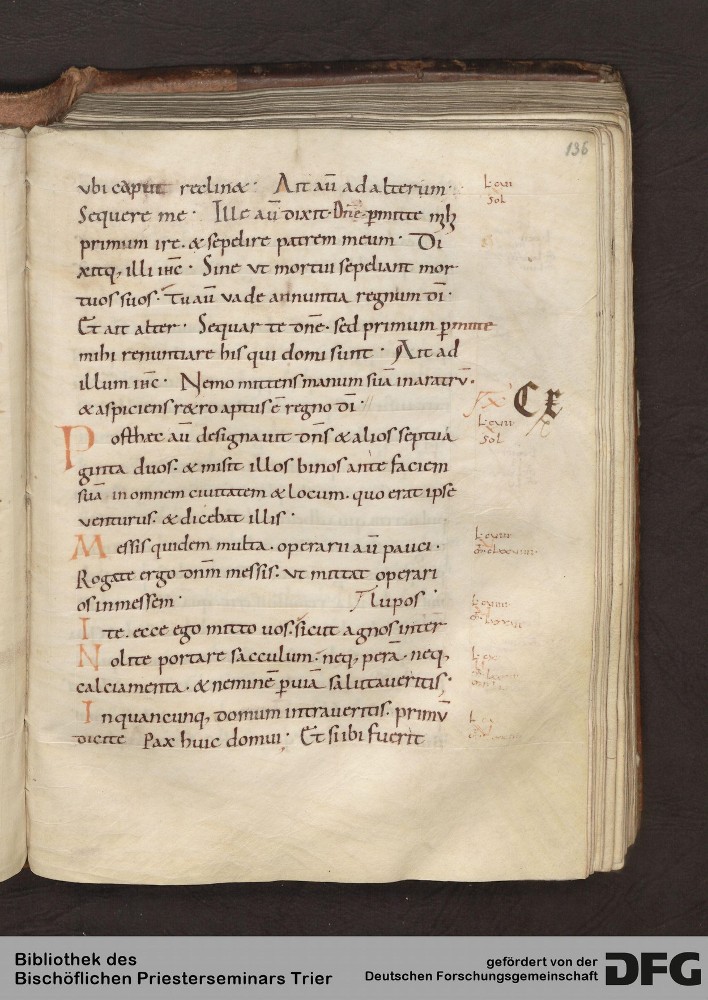 136
vbi caput reclinet· Ait aū ad alterum·
Sequere me· Ille aū dixit· Dn̄e p̱mitte m̄h
primum ire· & sepelire patrem meum· Di
xitq; illi ih̄c· Sine vt mortui sepeliant mor
tuos suos· Tu aū vade annuntia regnum dī·
Et ait alter· Sequar te dn̄e· sed primum p̱mitte
mihi renuntiare his qui domi sunt· Ait ad
illum ih̄c· Nemo mittens manum suā in aratrū·
& aspiciens retro aptus ē regno dī·
Posthaec aū designauit dn̄s & alios septua
ginta duos· & misit illos binos ante faciem
suā in omnem ciuitatem & locum· quo erat ipse
venturus· & dicebat illis·
Messis quidem multa· operarii aū pauci·
Rogate ergo dn̄m messis· vt mittat operari
os in messem· lupos·
Ite· ecce ego mitto uos· sicut agnos inter
Nolite portare sacculum· neq; perā· neq;
calciamenta· & neminē p̱ uiā salutaueritis;
Inquancunq; domum intraueritis· primū
dicite Pax huic domui· Et si ibi fuerit
sol
CX
sol
Bibliothek des
Bischöflichen Priesterseminars Trier
gefördert von der
Deutschen Forschungsgemeinschaft
DFG